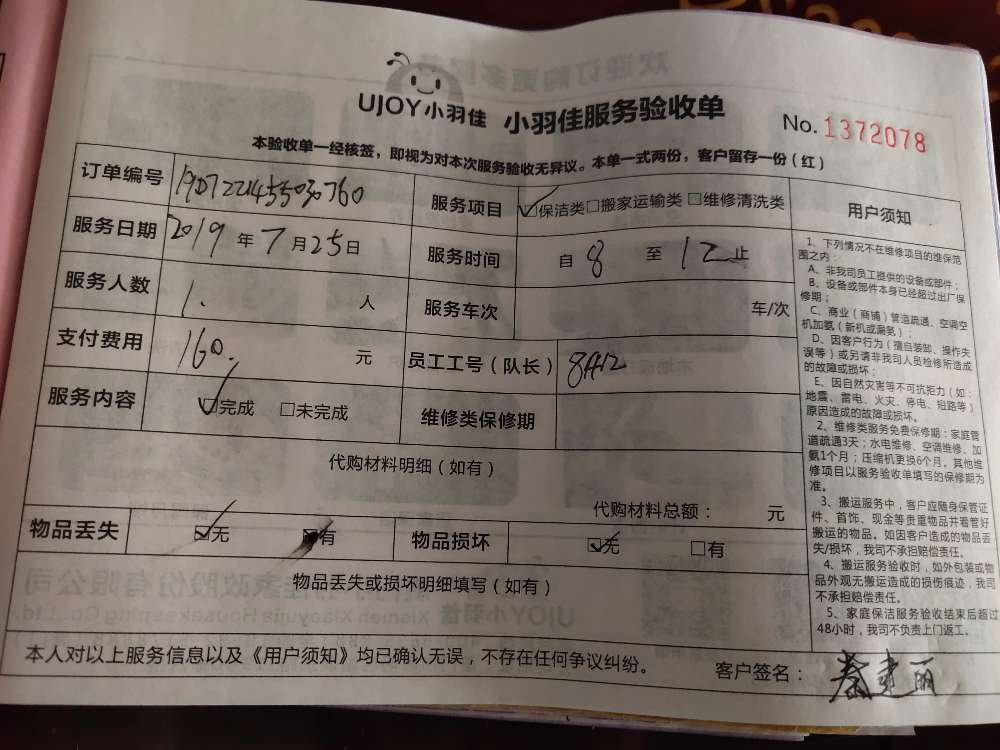 UJOY小羽佳 小羽佳服务验收单 No.1372078
本验收单一经核签，即视为对本次服务验收无异议。本单一式两份，客户留存一份（红）
订单编号 服务项目 ☑保洁类□搬家运输类□维修清洗类
服务日期 2019年7月25日 服务时间 自 8 至 12 止
服务人数 1. 人 服务车次 车/次
支付费用 160. 元 员工工号（队长）
服务内容 ☑完成 □未完成 维修类保修期
代购材料明细（如有）
代购材料总额： 元
物品丢失 ☑无 有 物品损坏 ☑无 □有
物品丢失或损坏明细填写（如有）
本人对以上服务信息以及《用户须知》均已确认无误，不存在任何争议纠纷。 客户签名：秦建丽
用户须知
1、下列情况不在维修项目的维保范
围之内：
A、非我司员工提供的设备或部件；
B、设备或部件本身已经超过出厂保
修期；
C、商业（商铺）管道疏通、空调空
机加氨（新机或漏氨）；
D、因客户行为（擅自装卸、操作失
误等）或另请非我司人员检修所造成
的故障或损坏；
E、因自然灾害等不可抗拒力（如：
地震、雷电、火灾、停电、短路等）
原因造成的故障或损坏。
2、维修类服务免费保修期：家庭管
道疏通3天；水电维修、空调维修、加
氨1个月；压缩机更换6个月。其他维
修项目以服务验收单填写的保修期为
准。
3、搬运服务中，客户应随身保管证
件、首饰、现金等贵重物品并看管好
搬运的物品。如因客户造成的物品丢
失/损坏，我司不承担赔偿责任。
4、搬运服务验收时，如外包装或物
品外观无搬运造成的损伤痕迹，我司
不承担赔偿责任。
5、家庭保洁服务验收结束后超过
48小时，我司不负责上门返工。